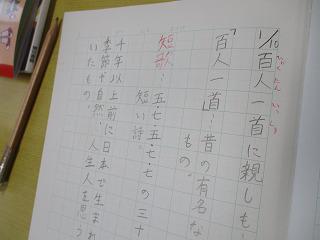 1/10百人一首に親しも
ひゃくにんいっしゅ
「百人一首…昔の有名な
もの。
短歌…五・七・五・七・七の三十
短い詩。
千年以上前に日本で生まれ
季節や自然、人生人を思う
いたもの。